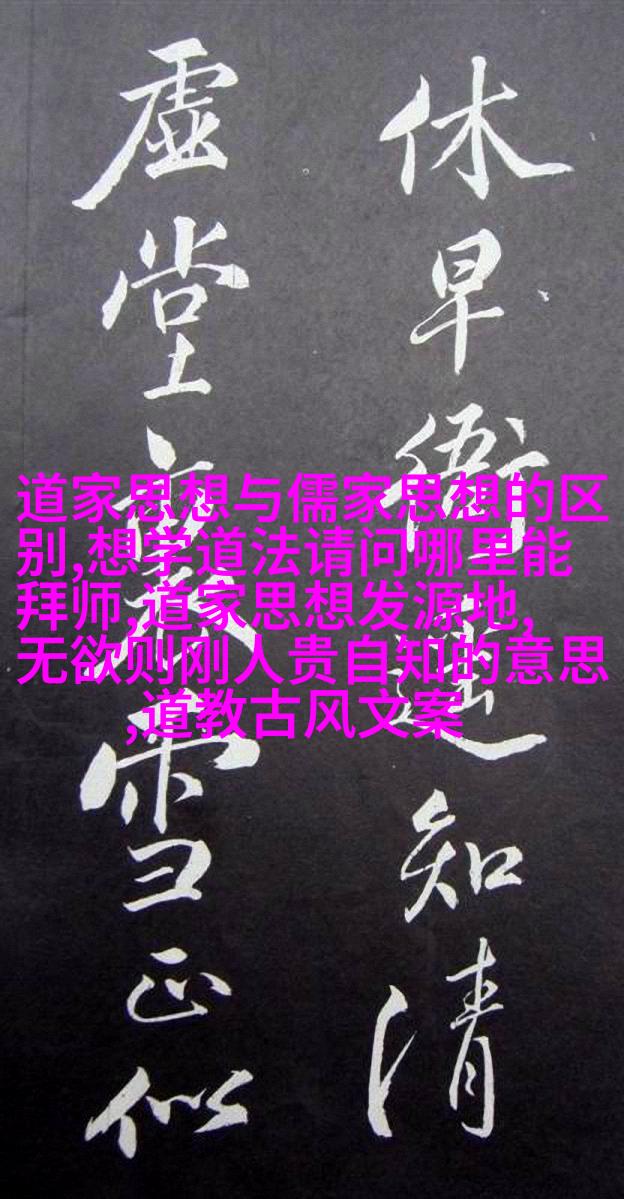 休早衙遥知清
虚堂裏雪正似
道家思想与儒家思想的区
别,想学道法请问哪里能
拜师,道家思想发源地,
无欲则刚人贵自知的意思
,道教古风文案